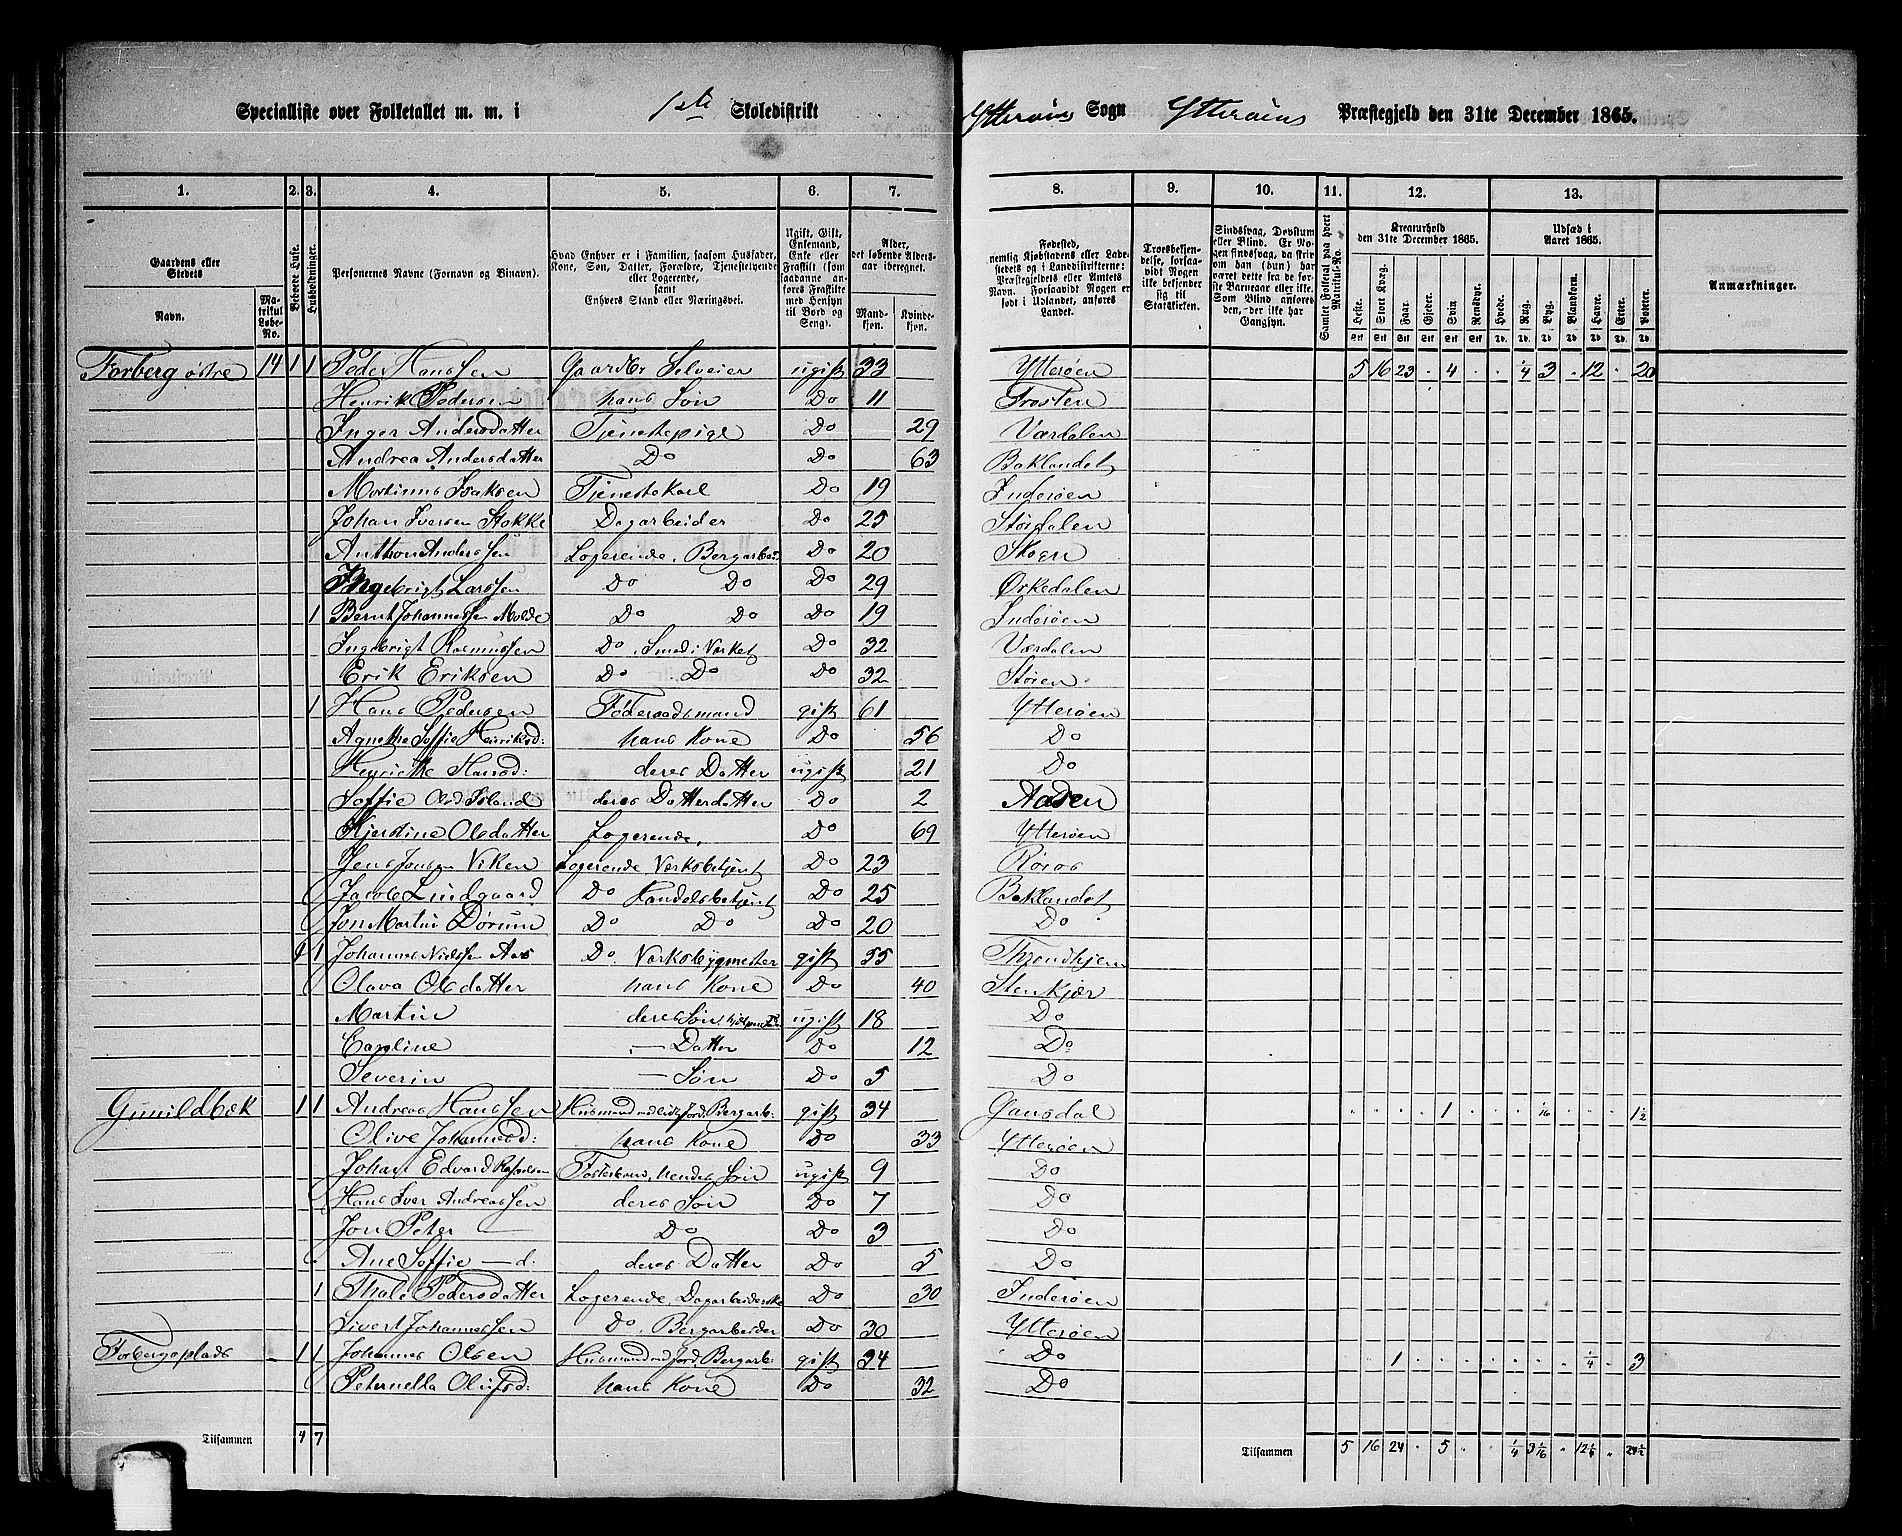 Specialliste over Folketallet m. m. i 1ste Skoledistrikt Ytterøens Sogn Ytterøens Præstegjeld den 31te December 1865.
1. 2. 3. 4. 5. 6. 7. 8. 9. 10. 11. 12. 13.
Gaardens eller Stedets Navn. Matrikul Løbe-No. Beboede Huse. Husholdninger. Personernes Navne (Fornavn og Binavn). Hvad Enhver er i Familien, saasom Husfader, Kone, Søn, Datter, Forældre, Tjenestetyende eller Logerende, samt Enhvers Stand eller Næringsvei. Ugift, Gift, Enkemand, Enke eller Fraskilt (som saadanne anføres Fraskilte med Hensyn til Bord og Seng). Alder, det løbende Aldersaar iberegnet. Mandkjøn. Kvindekjøn.
Fødested, nemlig Kjøbstadens eller Ladestedets og i Landdistrikterne: Præstegjeldets eller Amtets Navn. Forsaavidt Nogen er født i Udlandet, anføres Landet. Troesbekjendelse, forsaavidt Nogen ikke bekjender sig til Statskirken. Sindssvag, Døvstum eller Blind. Er Nogen sindssvag, da skrives om han (hun) har været dette fra de første Barneaar eller ikke. Som Blind anføres den, der ikke har Gangsyn. Samlet Folketal paa hvert Matrikul-No. Kreaturhold den 31te December 1865. Udsæd i Aaret 1865. Anmærkninger.
Heste. Stort Kvæg. Faar. Gjeder. Svin. Rensdyr. Hvede. Rug. Byg. Blandkorn. Havre. Erter. Poteter.
Forberg østre 14 1 1 Peder Hanssen Gaardbr Selveier ugift 33 Ytterøen 5 16 23 . 4 . . 1/4 3 . 12 . 20
Henrik Pedersen hans Søn Do 11 Frosten
Inger Andersdatter Tjenestepige Do 29 Værdalen
Andrea Andersdatter Do Do 63 Baklandet
Martinus Isaksen Tjenestekarl Do 19 Inderøen
Johan Iversen Stokke Dagarbeider Do 25 Størdalen
Anthon Anderssen Logerende, Bergarbei Do 20 Skoen
Ingebrigt Larssen Do Do Do 29 Ørkedalen
1 Bernt Johannessen Molde Do Do Do 19 Inderøen
Ingebrigt Rasmussen Do, Smed i Værket Do 32 Værdalen
Erik Eriksen Do Do Do 32 Støren
1 Hans Pedersen Føderaadsmand gift 61 Ytterøen
Agnethe Soffie Henriksd: hans Kone Do 56 Do
Henrikke Hansd: deres Datter ugift 21 Do
Soffie Olsd Island deres Datterdatter Do 2 Aasen
Kjerstine Olsdatter Logerende, Do 69 Ytterøen
Jens Jonsen Viken Logerende Værksbetjent Do 23 Røros
Jacob Lundgaard Do Handelsbetjent Do 25 Baklandet
Jon Martin Dørum Do Do Do 20 Do
1 1 Johannes Nielssen Aas Do. Værksbygmester gift 55 Throndhjem
Olava Olsdatter hans Kone Do 40 Stenkjær
Martin deres Søn ugift 18 Do
Caroline — Datter Do 12 Do
Severin — Søn Do 5 Do
Gunildbæk 1 1 Andreas Hanssen Husmand med lidt Jord, Bergarb: gift 34 . . . . 1 . . . 1/16 . . . 1 1/2
Olive Johannesd: hans Kone Do 33 Ytterøen
Johan Edvard Rafaelsen Fosterbarn, hendes Søn ugift 9 Do
Hans Iver Andreassen deres Søn Do 7 Do
Jon Peter — Do Do 3 Do
Ane Soffie — d: deres Datter Do 5 Do
1 Thale Pedersdatter Logerende, Dagarbeiderske Do 30 Inderøen
Sivert Johannessen Do, Bergarbeider Do 30 Ytterøen
Forbergsplads 1 1 Johannes Olsen Husmand med Jord, Bergarb: gift 34 Do . . 1 . . . . . . . 1/4 . 3
Peternella Olufsd: hans Kone Do 32 Do
Tilsammen 4 7 Tilsammen 5 16 24 . 5 . . 1/4 3 1/16 . 12 1/4 . 24 1/2